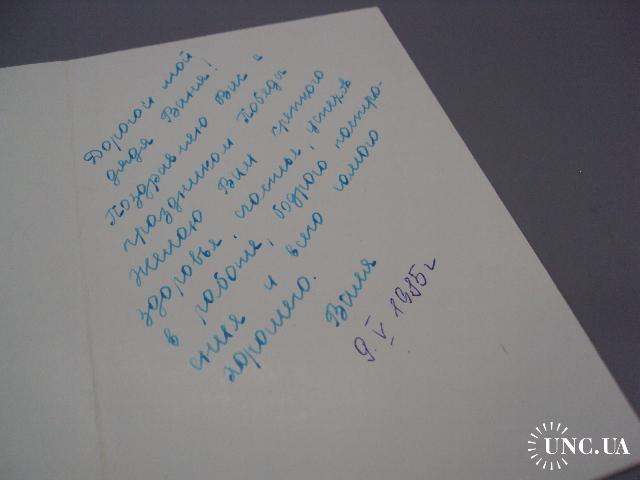 Дорогой мой
дядя Ваня!
Поздравляю Вас с
праздником Победы
Желаю Вам крепкого
здоровья, счастья, успехов
в работе, бодрого настро-
ения и всего самого
хорошего.
Валя
9.V 1985г
UNC.UA